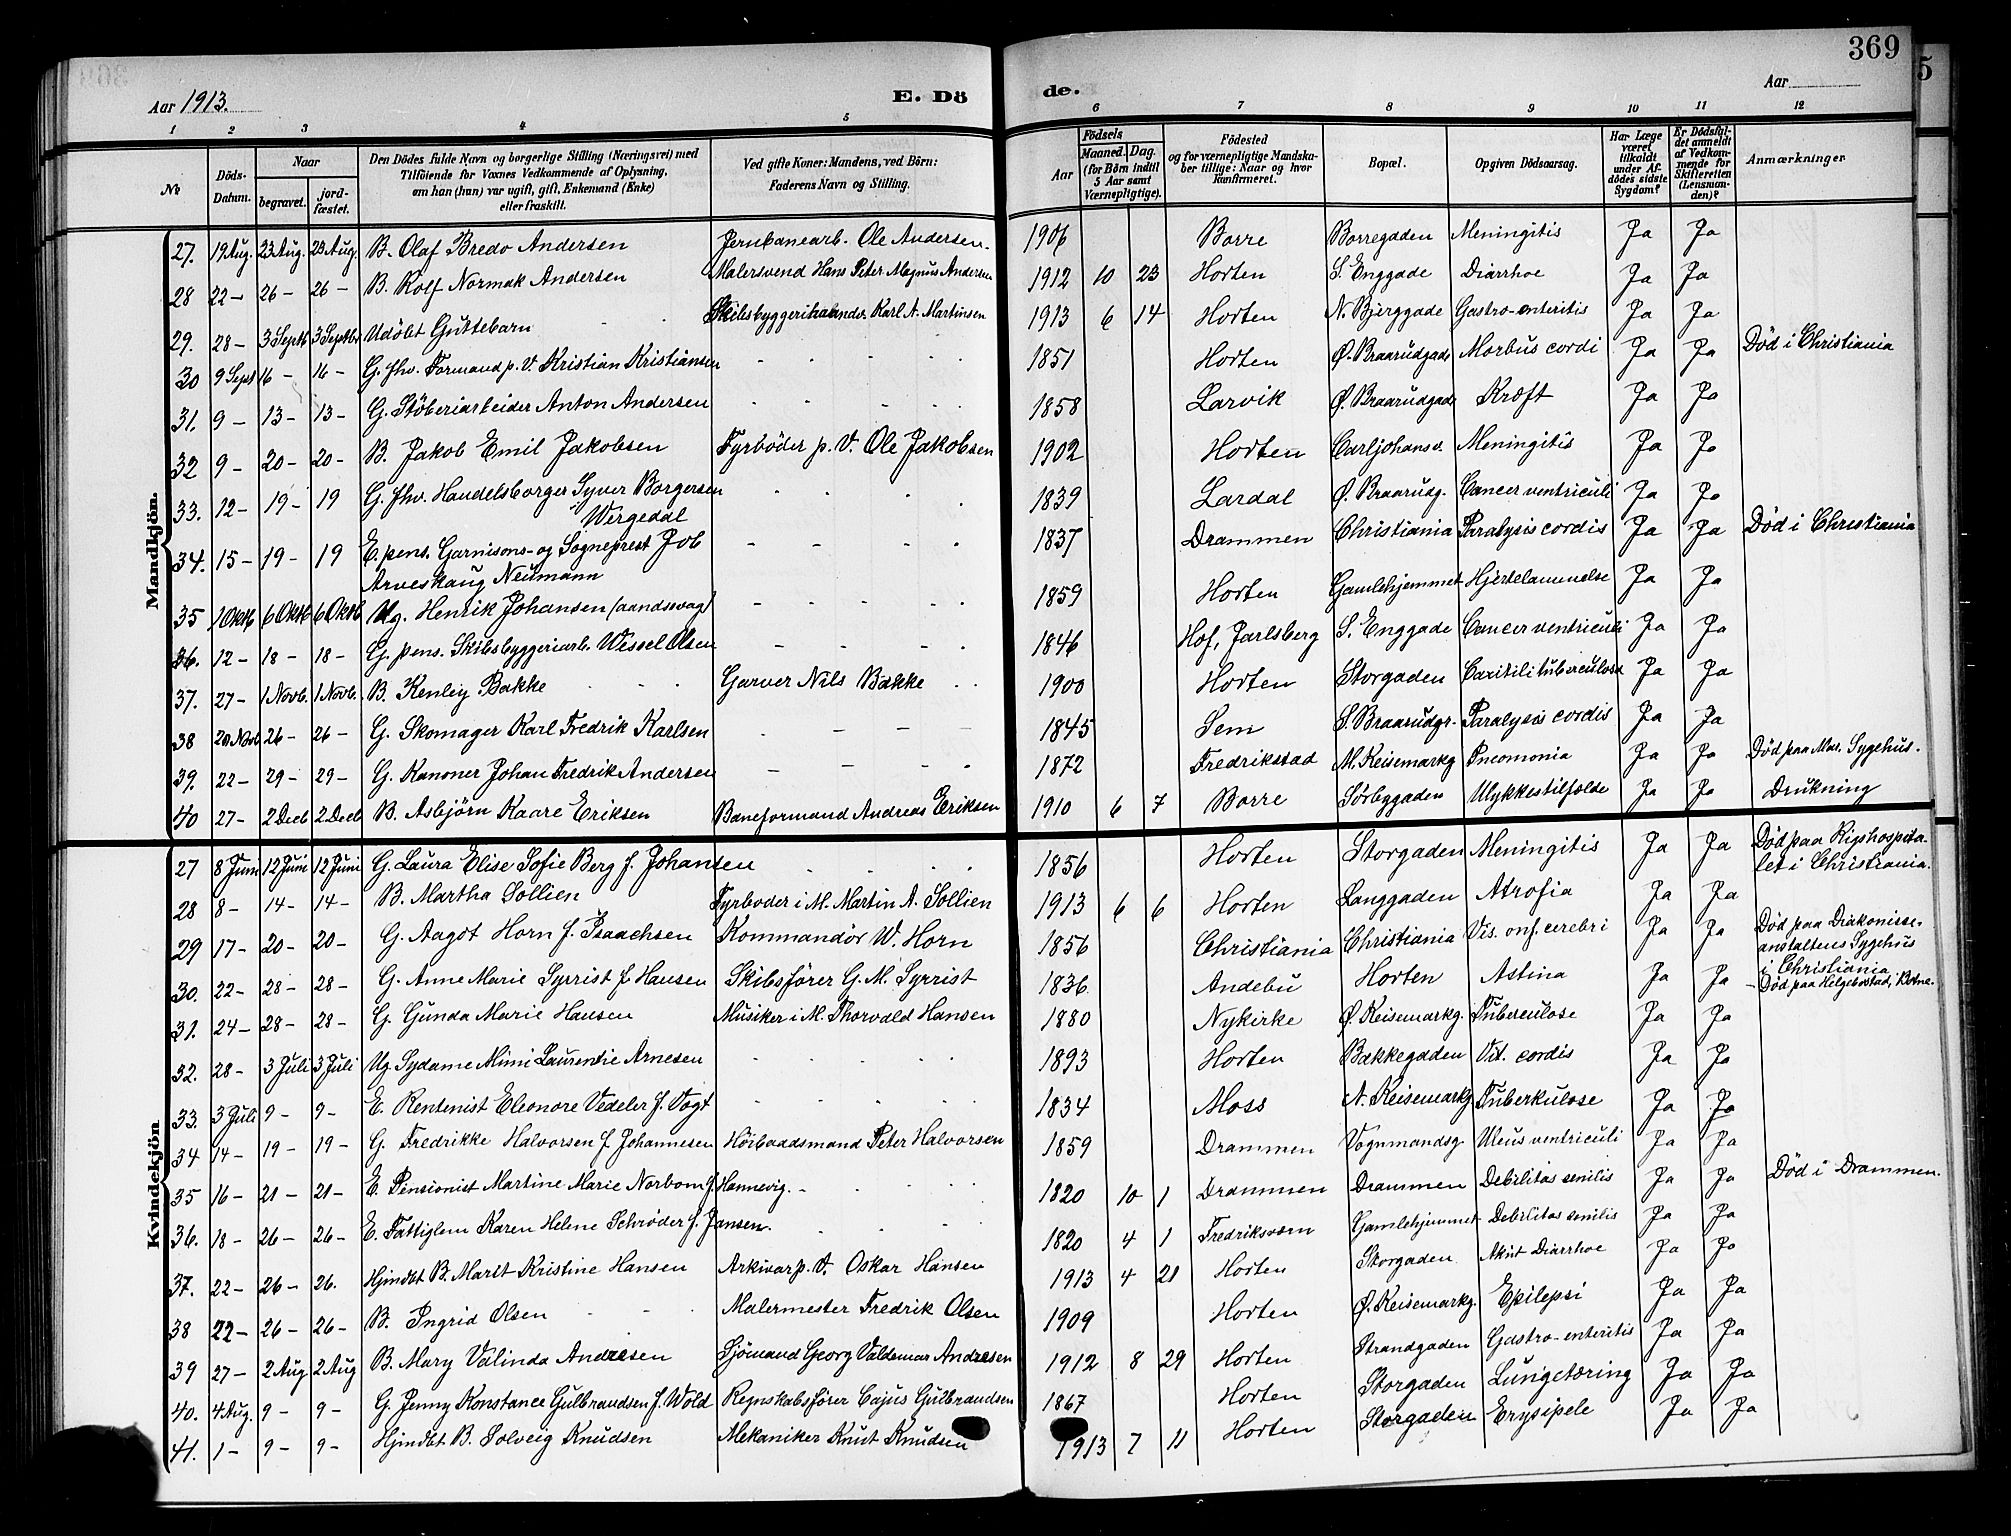 369
5
Aar 1913. E. Dö de. Aar
1 2 3 4 5 6 7 8 9 10 11 12
No
Döds-Datum.
Naar begravet. jordfæstet.
Den Dödes fulde Navn og borgerlige Stilling (Næringsvei) med Tilföiende for Voxnes Vedkommende af Oplysning, om han (hun) var ugift, gift, Enkemand (Enke) eller fraskilt.
Ved gifte Koner: Mandens, ved Börn: Faderens Navn og Stilling.
Födsels Aar Maaned. Dag. (for Börn indtil 5 Aar samt Værnepligtige).
Födested og for værnepligtige Mandskaber tillige: Naar og hvor konfirmeret.
Bopæl.
Opgiven Dödsaarsag.
Har Læge været tilkaldt under Afdödes sidste Sygdom?
Er Dödsfaldet anmeldt af Vedkommende for Skifteretten (Lensmanden)?
Anmærkninger
Mandkjön.
27. 19 Aug. 23 Aug. 23 Aug. B. Olaf Bredo Andersen Jernbanearb. Ole Andersen. 1906 Borre Borregaden Meningitis Ja Ja
28 22 – 26 – 26 – B. Rolf Normak Andersen Malersvend Hans Peter Magnus Andersen 1912 10 23 Horten S. Enggade Diarrhoe Ja Ja
29. 28 – 3 Septb 3 Septbr Udöbt Guttebarn Skibsbyggerihaandv. Karl A. Martinsen 1913 6 14 Horten N. Bjerggade Gastro-enteritis Ja Ja
30 9 Sept 16 – 16 – G. fhv. Formand p. V. Kristian Kristiansen 1851 Horten Ø. Braarudgade Morbus cordi Ja Ja Död i Christiania
31. 9 – 13 – 13 – G. Stöberiarbeider Anton Andersen 1858 Larvik Ø. Braarudgade Kræft Ja Ja
32 9 – 20 – 20 – B. Jakob Emil Jakobsen Fyrböder p. V. Ole Jakobsen 1902 Horten Carljohansv. Meningitis Ja Ja
33. 12 – 19 – 19 G. fhv. Handelsborger Syver Borgersen Wergedal 1839 Lardal Ø. Braarudg. Cancer ventriculi Ja Ja
34. 15 – 19 – 19 E. pens. Garnisons- og Sogneprest Job Arveskaug Neumann 1837 Drammen Christiania Paralysis cordis Ja Ja Död i Christiania
35 1 Oktb 6 Oktb 6 Oktb. Ug. Henrik Johansen (aandssvag) 1859 Horten Gamlehjemmet Hjertelammelse Ja Ja
36. 12 – 18 – 18 – G. pens. Skibsbyggeriarb. Wessel Olsen 1846 Hof, Jarlsberg S. Enggade Cancer ventriculi Ja Ja
37. 27 – 1 Novb. 1 Novb. B. Kenley Bakke Garver Nils Bakke 1900 Horten Storgaden tuberculosa Ja Ja
38 20 Novb 26 – 26 – G. Skomager Karl Fredrik Karlsen 1845 Sem S. Braarudgr. Paralysis cordis Ja Ja
39. 22 – 29 – 29 – G. Kanoner Johan Fredrik Andersen 1872 Fredrikstad M. Keisemarkg Pneomonia Ja Ja Död paa Mar. Sygehus.
40 27 – 2 Decb 2 Decb B. Asbjörn Kaare Eriksen Baneformand Andreas Eriksen 1910 6 7 Borre Sörbygaden Ulykkestilfælde Ja Ja Drukning
Kvindekjön
27 8 Juni 12 Juni 12 Juni G. Laura Elise Sofie Berg f. Johansen 1856 Horten Storgaden Meningitis Ja Ja Död paa Rigshospitalet i Christiania.
28 8 – 14 – 14 – B. Martha Sollien Fyrböder i M. Martin A. Sollien 1913 6 6 Horten Langgaden Atrofia Ja Ja
29 17 – 20 – 20 – G. Aagot Horn f. Isaachsen Kommandör W. Horn 1856 Christiania Christiania Vis. onf. cerebri Ja Ja Död paa Diakonisseanstaltens Sygehus i Christiania
30. 22 – 28 – 28 – G. Anne Marie Syrrist f Hansen Skibsförer G. M. Syrrist 1836 Andebu Horten Astma Ja Ja – Död paa Helgebostad, Botne.
31. 24 – 28 – 28 – G. Gunda Marie Hansen Musiker i M. Thorvald Hansen 1880 Nykirke Ø. Keisemarkg. Tuberculose Ja Ja
32. 28 – 3 Juli 3 Juli Ug. Sydame Mimi Laurentie Arnesen 1893 Horten Bakkegaden Vit. cordis Ja Ja
33. 3 Juli 9 – 9 – E. Rentenist Eleonore Vedeler f. Vogt 1834 Moss N. Keisemarkg Tuberkulose Ja Ja
34 14 – 19 – 19 – G. Fredrikke Halvorsen f Johannesen Höibaadsmand Peter Halvorsen 1859 Drammen Vognmandsg. Ulcus ventriculi Ja Ja
35 16 – 21 – 21 – E. Pensionist Martine Marie Norbom f. Hannevig. 1820 10 1 Drammen Drammen Debilitas senilis Ja Ja Död i Drammen.
36. 18 – 26 – 26 – E. Fattiglem Karen Helene Schrøder f. Jansen. 1820 4 1 Fredriksværn Gamlehjemmet Debilitas senilis Ja Ja
37. 22 – 26 – 26. Hjmdbt B. Marit Kristine Hansen Arkivar p. V. Oskar Hansen 1913 4 21 Horten Storgaden Akut Diarrhoe Ja Ja
38 22 – 26 – 26 – B. Ingrid Olsen Malermester Fredrik Olsen 1909 Horten Ø. Keisemarkg. Epilepsi Ja Ja
39 27 – 2 Aug 2 Aug B. Mary Valinda Andresen Sjömand Georg Valdemar Andresen 1912 8 29 Horten Strandgaden Gastro-enteritis Ja Ja
40. 4 Aug. 9 – 9 – G. Jenny Konstance Gulbrandsen f. Wold Regnskabsförer Cajus Gulbrandsen 1867 Horten Storgaden Lungetæring Ja Ja
41. 1 – 9 – 9 – Hjmdbt B. Solveig Knudsen Mekaniker Knut Knudsen 1913 7 11 Horten Storgaden Erysipele Ja Ja